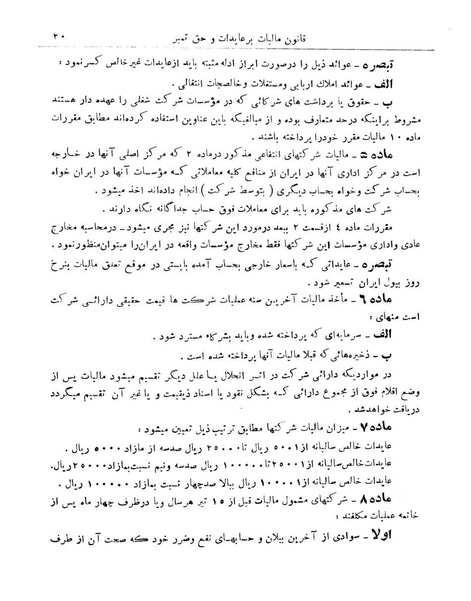 قانون مالیات بر عایدات و حق تمبر
۲۰
تبصره - عوائد ذیل را درصورت ابراز ادله مثبته باید ازعایدات غیرخالص کسر نمود:
الف - عوائد املاک اربابی ومستغلات وخالصجات انتقالی .
ب - حقوق یا برداشت های شرکائی که در مؤسسات شرکت شغلی را عهده دار هستند
مشروط براینکه درحد متعارف بوده و از مبالغیکه باین عناوین استفاده کرده‌اند مطابق مقررات
ماده ۱۰ مالیات مقرر خودرا پرداخته باشند .
ماده ۵ - مالیات شرکتهای انتفاعی مذکور درماده ۲ که مرکز اصلی آنها در خارجه
است در مرکز اداری آنها در ایران از منافع کلیه معاملاتی که مؤسسات آنها در ایران خواه
بحساب شرکت وخواه بحساب دیگری ( بتوسط شرکت ) انجام داده‌اند اخذ میشود .
شرکت های مذکوره باید برای معاملات فوق حساب جداگانه نگاه دارند .
مقررات ماده ٤ ازقسمت ۲ ببعد درمورد این شرکتها نیز مجری میشود - درمحاسبه مخارج
عادی واداری مؤسسات این شرکتها فقط مخارج مؤسسات واقعه در ایران‌را میتوان‌منظورنمود .
تبصره - عایداتی که باسعار خارجی بحساب آمده بایستی در موقع تعلق مالیات بنرخ
روز بپول ایران تسعیر شود .
ماده ۶ - مأخذ مالیات آخرین سنه عملیات شرکت ها قیمت حقیقی دارائی شرکت
است منهای :
الف - سرمایه‌ای که پرداخته شده وباید بشرکاء مسترد شود .
ب - ذخیره‌هائی که قبلا مالیات آنها پرداخته شده است .
در مواردیکه دارائی شرکت در اثر انحلال یا علل دیگر تقسیم میشود مالیات پس از
وضع اقلام فوق از مجموع دارائی که بشکل نقود یا اسناد ذیقیمت و یا غیر آن تقسیم میگردد
دریافت خواهدشد .
ماده ۷ - میزان مالیات شرکتها مطابق ترتیب ذیل تعیین میشود :
عایدات خالص سالیانه از ۵۰۰۱ ریال تا ۲۵۰۰۰ ریال صدسه از مازاد ۵۰۰۰ ریال .
عایدات خالص سالیانه از ۲۵۰۰۱ تا ۱۰۰۰۰۰ ریال صدسه ونیم نسبت‌بمازاد ۲۵۰۰۰ ریال.
عایدات خالص سالیانه از ۱۰۰۰۰۱ ریال ببالا صدچهار نسبت بمازاد ۱۰۰۰۰۰ ریال .
ماده ۸ - شرکتهای مشمول مالیات قبل از ۱۵ تیر هرسال ویا درظرف چهار ماه پس از
خاتمه عملیات مکلفند :
اولا - سوادی از آخرین بیلان و حسابهای نفع وضرر خود که صحت آن از طرف